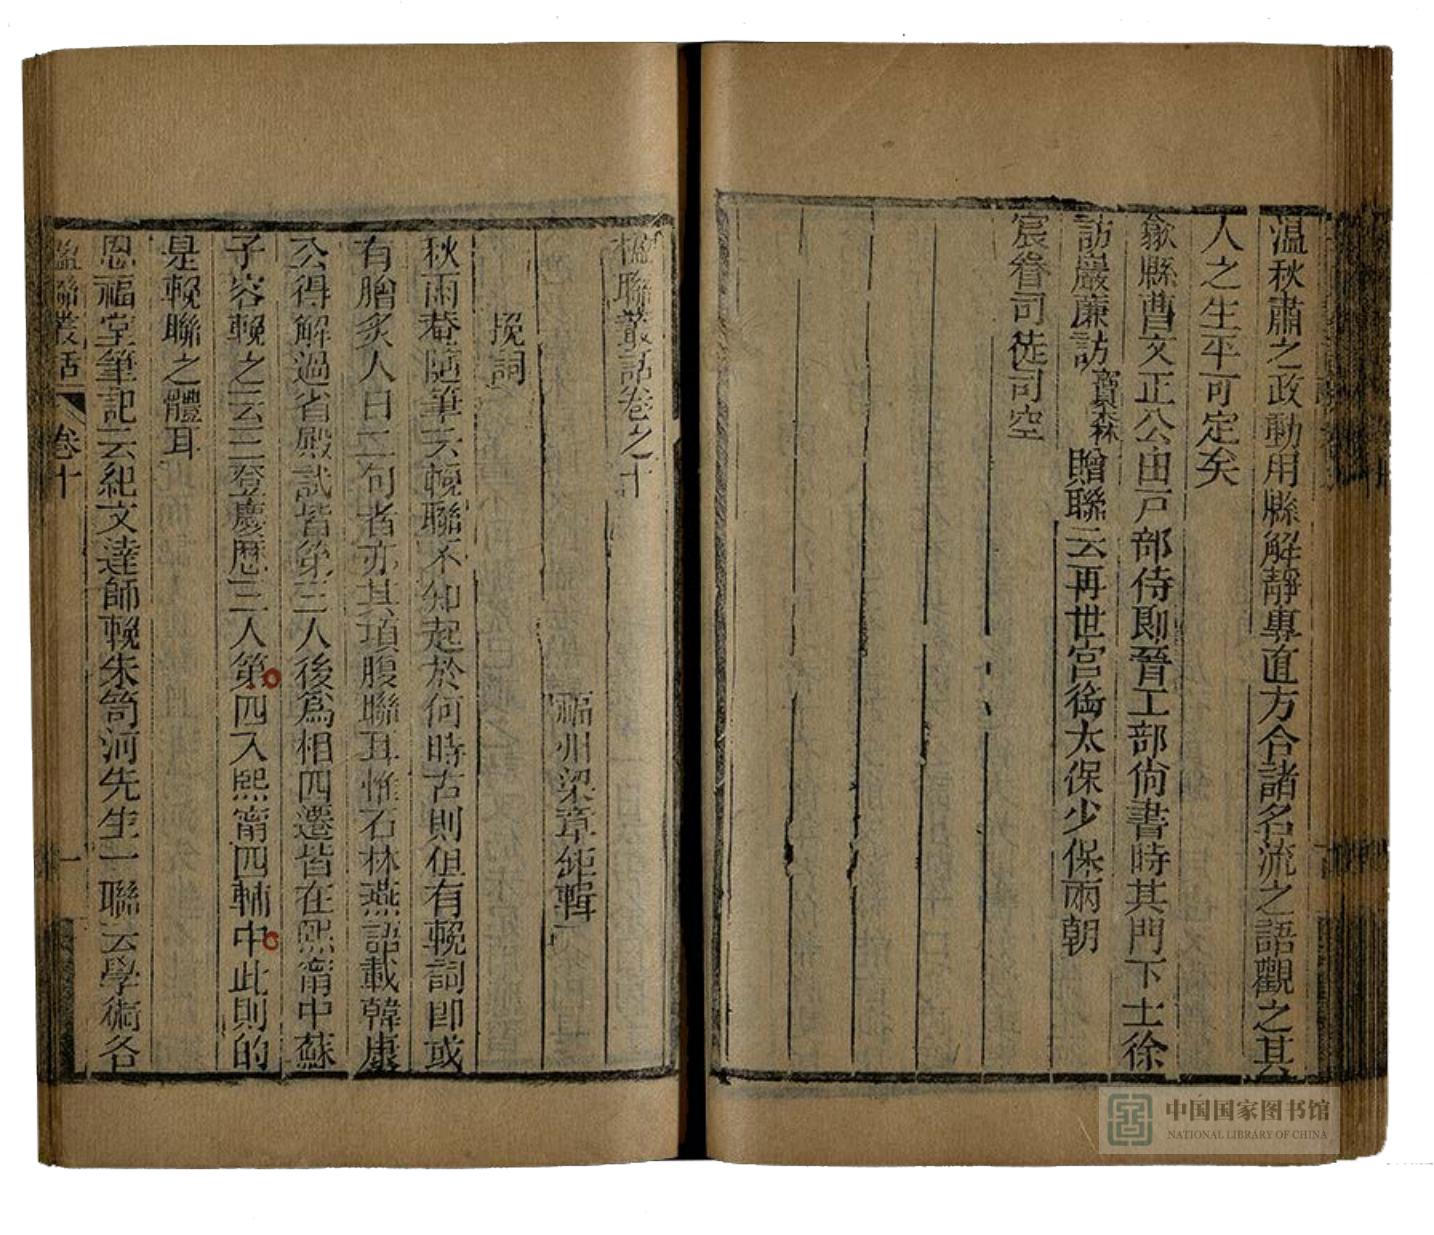 溫秋肅之政動用縣解靜專直方合諸名流之語觀之其
人之生平可定矣
歙縣曹文正公由戸部侍郎晉工部尙書時其門下士徐
訪巖廉訪寶森贈聯云再世宮銜太保少保兩朝
宸眷司徒司空
楹聯叢話卷之十
福州梁章鉅輯
挽詞
秋雨菴随筆云輓聯不知起於何時古則但有輓詞即或
有膾炙人口二句者亦其項腹聯耳惟石林燕語載韓康
公得解過省殿試皆第三人後爲相四遷皆在熙甯中蘇
子容輓之云三登慶歴三人第四入熙甯四輔中此則的
是輓聯之體耳
恩福堂筆記云紀文達師輓朱笥河先生一聯云學術各
楹聯叢話 卷十 一
中国国家图书馆
NATIONAL LIBRARY OF CHINA